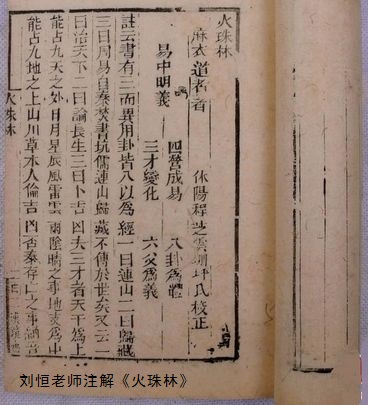 火珠林
麻衣道者著　休陽程芝雲坪氏校正
四營成易　八卦為體
易中明義
三才變化　六爻為義
註云書有三而異用卦皆八以為經一曰連山二曰歸藏
三曰周易自秦焚書坑儒連山歸藏不傳於世矣又云一
曰治天下二曰論長生三曰卜吉凶夫三才者天為上
能占九天之外日月星辰風雷雲雨陰晴之事地支為中
能占九地之上山川草木人倫吉凶否泰存亡之事納音
火珠林
刘恒老师注解《火珠林》